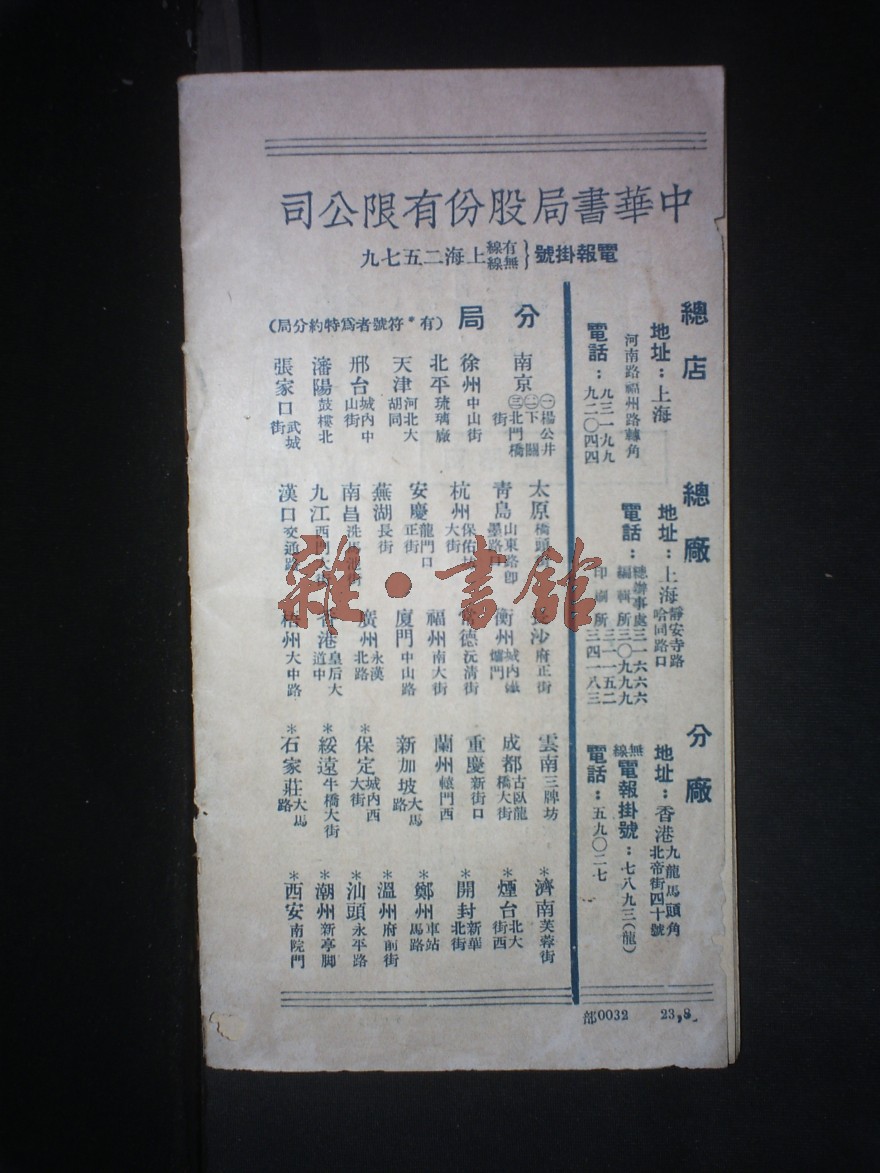 中華書局股份有限公司
電報掛號{有線無線}上海二五七九
總店
地址：上海
河南路福州路轉角
電話：九三一九九
九二〇四四
總廠
地址：上海靜安寺路哈同路口
電話：總辦事處三一六六六
編輯所三〇九九九
三一一五二
印刷所三四一八三
分廠
地址：香港九龍馬頭角北帝街四十號
無線電報掛號：七八九三(龍)
電話：五九〇二七
分局(有*符號者爲特約分局)
南京㊀楊公井㊁下關㊂北門橋街
徐州中山街
北平琉璃廠
天津河北大胡同
邢台城內中山街
瀋陽鼓樓北
張家口武城街
太原橋頭街
青島山東路卽墨路口
杭州保佑坊大街
安慶龍門口正街
蕪湖長街
南昌洗馬池街
九江西門大街
漢口交通路
長沙府正街
衡州城內鐵爐門
常德沅清街
福州南大街
廈門中山路
廣州永漢北路
香港皇后大道中
梧州大中路
雲南三牌坊
成都古臥龍橋大街
重慶新街口
蘭州轅門西
新加坡大馬路
*保定城內西大街
*綏遠牛橋大街
*石家莊大馬路
*濟南芙蓉街
*煙台北大街西
*開封新華北街
*鄭州車站馬路
*溫州府前街
*汕頭永平路
*潮州新亭脚
*西安南院門
部0032 23,8.
雜·書館